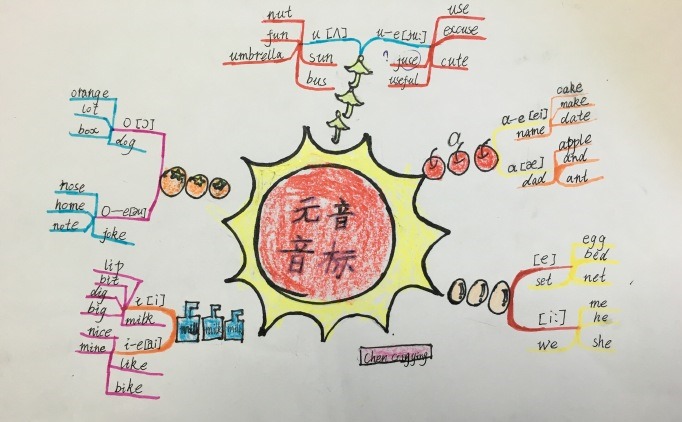 元音
音标
nut
fun
umbrella
u [ʌ]
sun
bus
u-e [ju:]
use
excuse
?
juse
cute
useful
orange
lot
box
o [ɔ]
dog
nose
home
note
o-e[əu]
joke
lip
bit
dig
big
i [i]
milk
nice
mine
i-e[ai]
like
bike
milk
milk
milk
a
a-e [ei]
cake
make
date
name
a [æ]
apple
and
dad
ant
[e]
egg
bed
set
net
[i:]
me
he
we
she